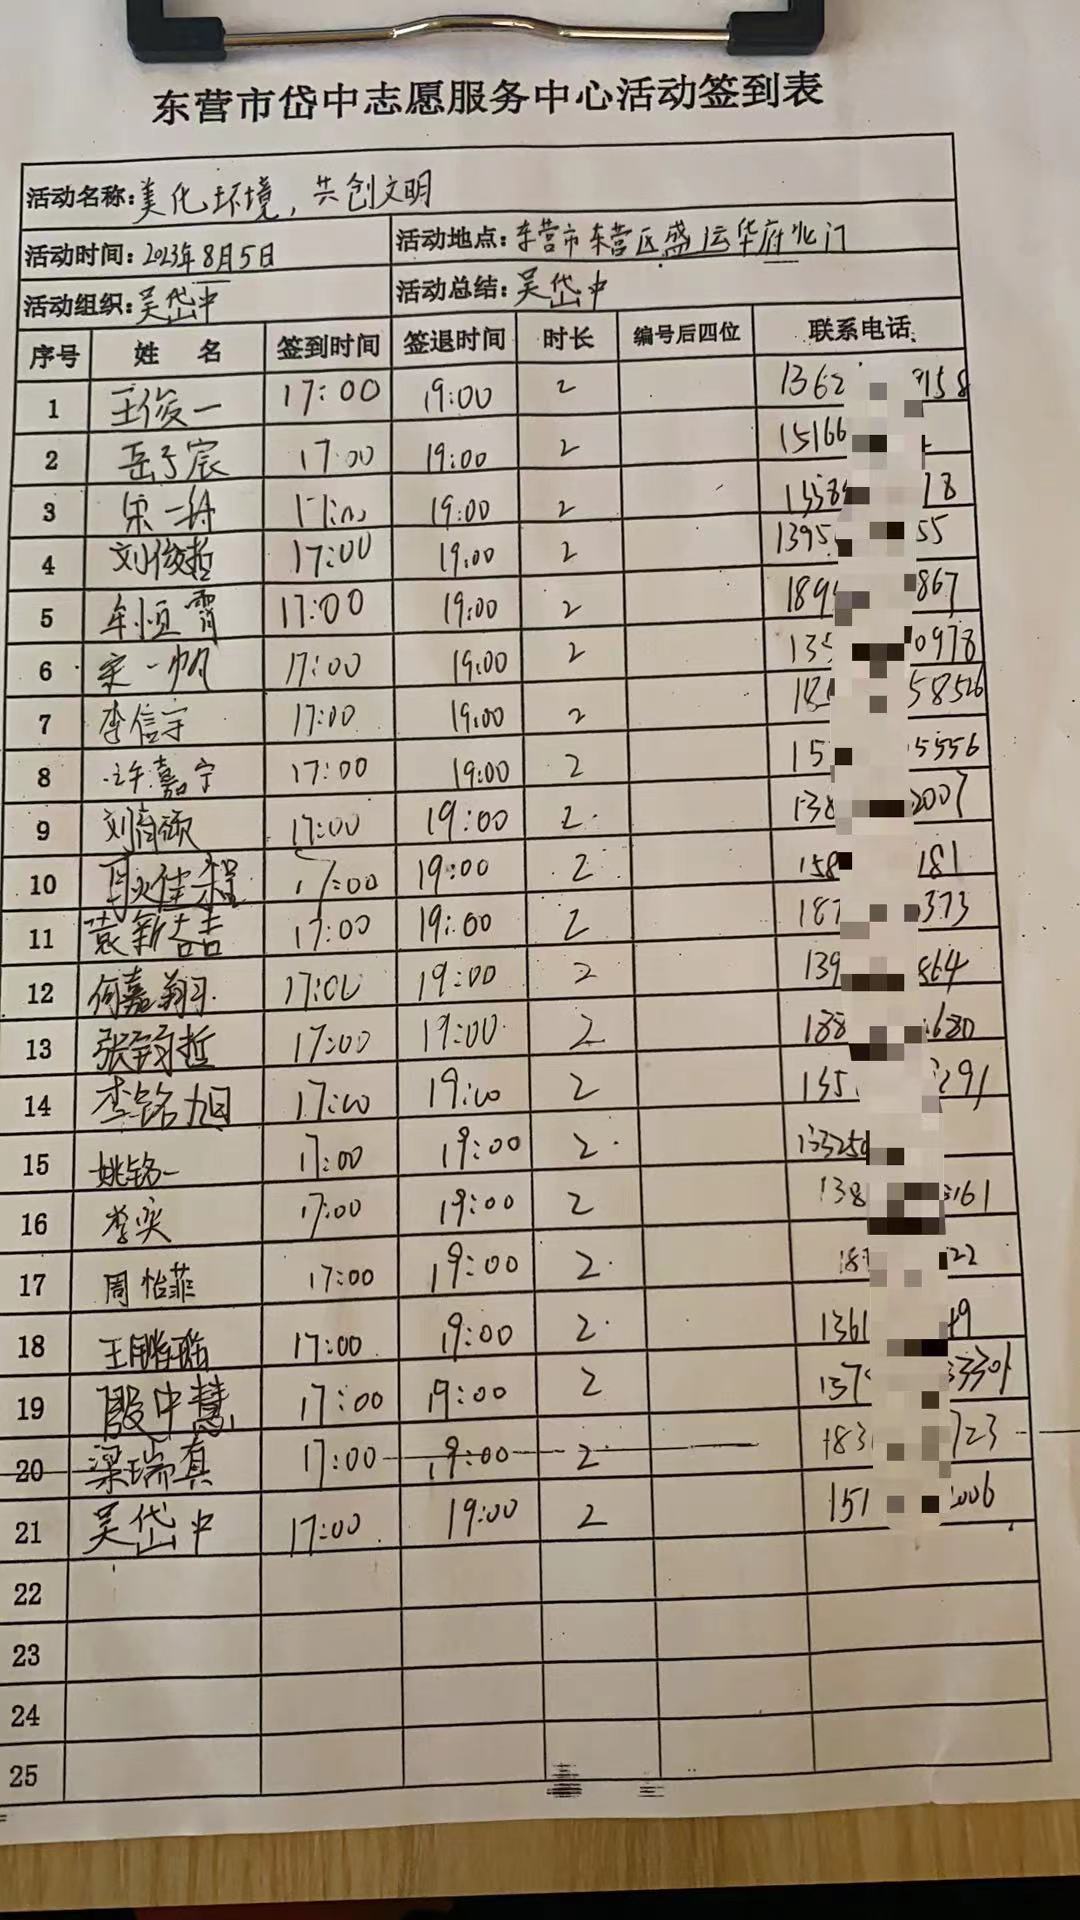 东营市岱中志愿服务中心活动签到表
活动名称:美化环境,共创文明
活动时间:2023年8月5日 活动地点:东营市东营区盛运华府北门
活动组织:吴岱中 活动总结:吴岱中
序号 姓 名 签到时间 签退时间 时长 编号后四位 联系电话
1 王俊一 17:00 19:00 2 1362 9158
2 岳子宸 17:00 19:00 2 15166
3 宋一舟 17:00 19:00 2 13589 18
4 刘俊哲 17:00 19:00 2 1395 55
5 牟恒霄 17:00 19:00 2 189 867
6 宋一帆 17:00 19:00 2 135 0978
7 李信宇 17:00 19:00 2 18 58526
8 许嘉宁 17:00 19:00 2 15 5556
9 刘 颂 17:00 19:00 2 138 2007
10 佳程 17:00 19:00 2 158 181
11 袁新喆 17:00 19:00 2 187 373
12 何嘉翔 17:00 19:00 2 139 864
13 张钧哲 17:00 19:00 2 188 680
14 李铭旭 17:00 19:00 2 135 291
15 姚铭一 17:00 19:00 2 133250
16 李奕 17:00 19:00 2 138 161
17 周怡菲 17:00 19:00 2 18 22
18 王 瑞 17:00 19:00 2 1361 49
19 殷中慧 17:00 19:00 2 137 3301
20 梁瑞真 17:00 19:00 2 183 723
21 吴岱中 17:00 19:00 2 151 2006
22
23
24
25